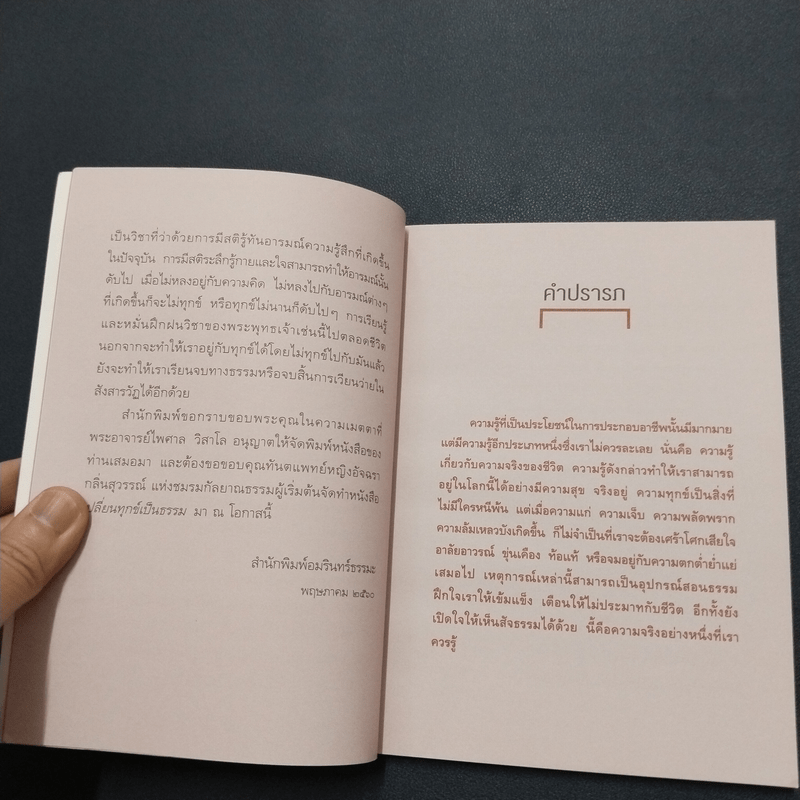 เป็นวิชาที่ว่าด้วยการมีสติรู้ทันอารมณ์ความรู้สึกที่เกิดขึ้น
ในปัจจุบัน การมีสติระลึกรู้กายและใจสามารถทำให้อารมณ์นั้น
ดับไป เมื่อไม่หลงอยู่กับความคิด ไม่หลงไปกับอารมณ์ต่างๆ
ที่เกิดขึ้นก็จะไม่ทุกข์ หรือทุกข์ไม่นานก็ดับไปๆ การเรียนรู้
และหมั่นฝึกฝนวิชาของพระพุทธเจ้าเช่นนี้ไปตลอดชีวิต
นอกจากจะทำให้เราอยู่กับทุกข์ได้โดยไม่ทุกข์ไปกับมันแล้ว
ยังจะทำให้เราเรียนจบทางธรรมหรือจบสิ้นการเวียนว่ายใน
สังสารวัฏได้อีกด้วย
สำนักพิมพ์ขอกราบขอบพระคุณในความเมตตาที่
พระอาจารย์ไพศาล วิสาโล อนุญาตให้จัดพิมพ์หนังสือของ
ท่านเสมอมา และต้องขอขอบคุณทันตแพทย์หญิงอัจฉรา
กลิ่นสุวรรณ์ แห่งชมรมกัลยาณธรรมผู้เริ่มต้นจัดทำหนังสือ
ปลี่ยนทุกข์เป็นธรรม มา ณ โอกาสนี้
สำนักพิมพ์อมรินทร์ธรรมะ
พฤษภาคม ๒๕๖๐
คำปรารภ
ความรู้ที่เป็นประโยชน์ในการประกอบอาชีพนั้นมีมากมาย
แต่มีความรู้อีกประเภทหนึ่งซึ่งเราไม่ควรละเลย นั่นคือ ความรู้
เกี่ยวกับความจริงของชีวิต ความรู้ดังกล่าวทำให้เราสามารถ
อยู่ในโลกนี้ได้อย่างมีความสุข จริงอยู่ ความทุกข์เป็นสิ่งที่
ไม่มีใครหนีพ้น แต่เมื่อความแก่ ความเจ็บ ความพลัดพราก
ความล้มเหลวบังเกิดขึ้น ก็ไม่จำเป็นที่เราจะต้องเศร้าโศกเสียใจ
อาลัยอาวรณ์ ขุ่นเคือง ท้อแท้ หรือจมอยู่กับความตกต่ำย่ำแย่
เสมอไป เหตุการณ์เหล่านี้สามารถเป็นอุปกรณ์สอนธรรม
ฝึกใจเราให้เข้มแข็ง เตือนให้ไม่ประมาทกับชีวิต อีกทั้งยัง
เปิดใจให้เห็นสัจธรรมได้ด้วย นี้คือความจริงอย่างหนึ่งที่เรา
ควรรู้